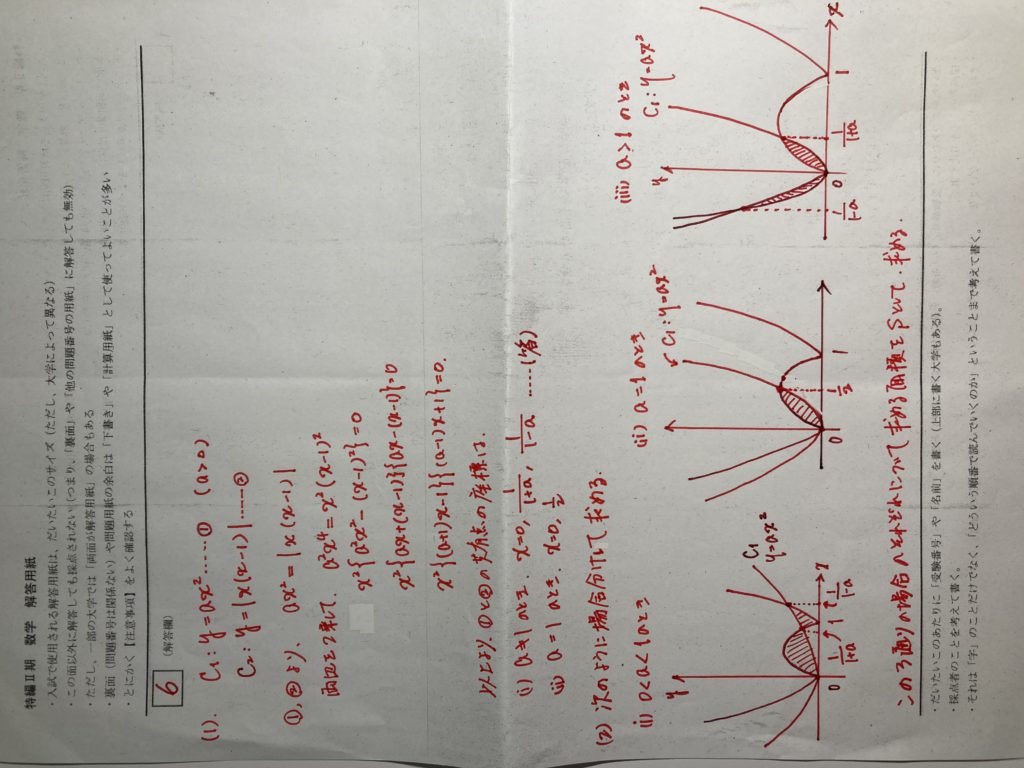 特編Ⅱ期 数学 解答用紙
・入試で使用される解答用紙は、だいたいこのサイズ（ただし、大学によって異なる）
・この面以外に解答しても採点されない（つまり、「裏面」や「他の問題番号の用紙」に解答しても無効）
・ただし、一部の大学では「両面が解答用紙」の場合もある
・裏面（問題番号は関係ない）や問題用紙の余白は「下書き」や「計算用紙」として使ってよいことが多い
・とにかく【注意事項】をよく確認する
6
（解答欄）
(1). C₁: y=ax² ……① (a>0)
C₂: y=|x(x-1)| ……②
①,②より、 ax²=|x(x-1)|
両辺を2乗して、 a²x⁴=x²(x-1)²
x²{a²x²-(x-1)²}=0
x²{ax+(x-1)}{ax-(x-1)}=0
x²{(a+1)x-1}{(a-1)x+1}=0.
以上より、①と②の共有点の座標は、
(i) a≠1のとき. x=0, 1/(1+a), 1/(1-a)
(ii) a=1のとき. x=0, 1/2 ……(答)
(2) 次のように場合分けして求める.
(i) 0<a<1のとき
y
C₁
y=ax²
0
1/(1+a)
1
1/(1-a)
x
(ii) a=1のとき
C₁: y=ax²
0
1/2
1
(iii) a>1のとき
y
C₁: y=ax²
1/(1-a)
0
1/(1+a)
1
x
この3通りの場合のそれぞれについて求める面積をSとして、求める.
・だいたいこのあたりに「受験番号」や「名前」を書く（上部に書く大学もある）。
・採点者のことを考えて書く。
・それは「字」のことだけでなく、「どういう順番で読んでいくのか」ということまで考えて書く。